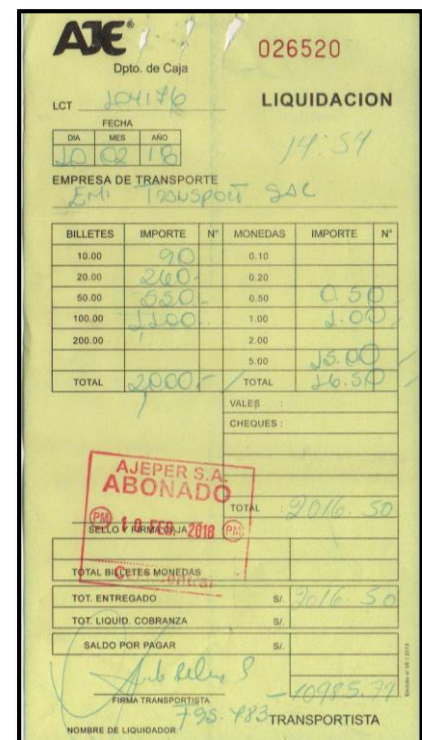 AJE®
026520
Dpto. de Caja
LCT 104176
LIQUIDACION
FECHA
DIA MES AÑO
10 02 18
14:54
EMPRESA DE TRANSPORTE
EMI TRANSPORT SAC
BILLETES IMPORTE N° MONEDAS IMPORTE N°
10.00 90 0.10
20.00 260 0.20
50.00 550 0.50 0.50
100.00 1100 1.00 1.00
200.00 2.00
5.00 15.00
TOTAL 2000 TOTAL 16.50
VALES :
CHEQUES :
AJEPER S.A.
ABONADO
TOTAL : 2016.50
PM 10 FEB. 2018 PM
SELLO Y FIRMA CAJA
TOTAL BILLETES MONEDAS
TOT. ENTREGADO S/. 2016.50
TOT. LIQUID. COBRANZA S/.
SALDO POR PAGAR S/.
FIRMA TRANSPORTISTA
795.483
TRANSPORTISTA
NOMBRE DE LIQUIDADOR :